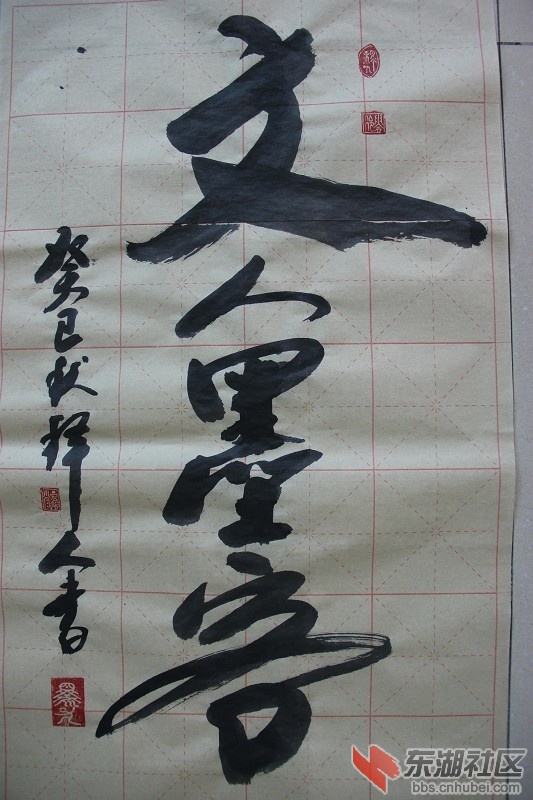 文人墨客
癸巳秋择人书
东湖社区
bbs.cnhubei.com